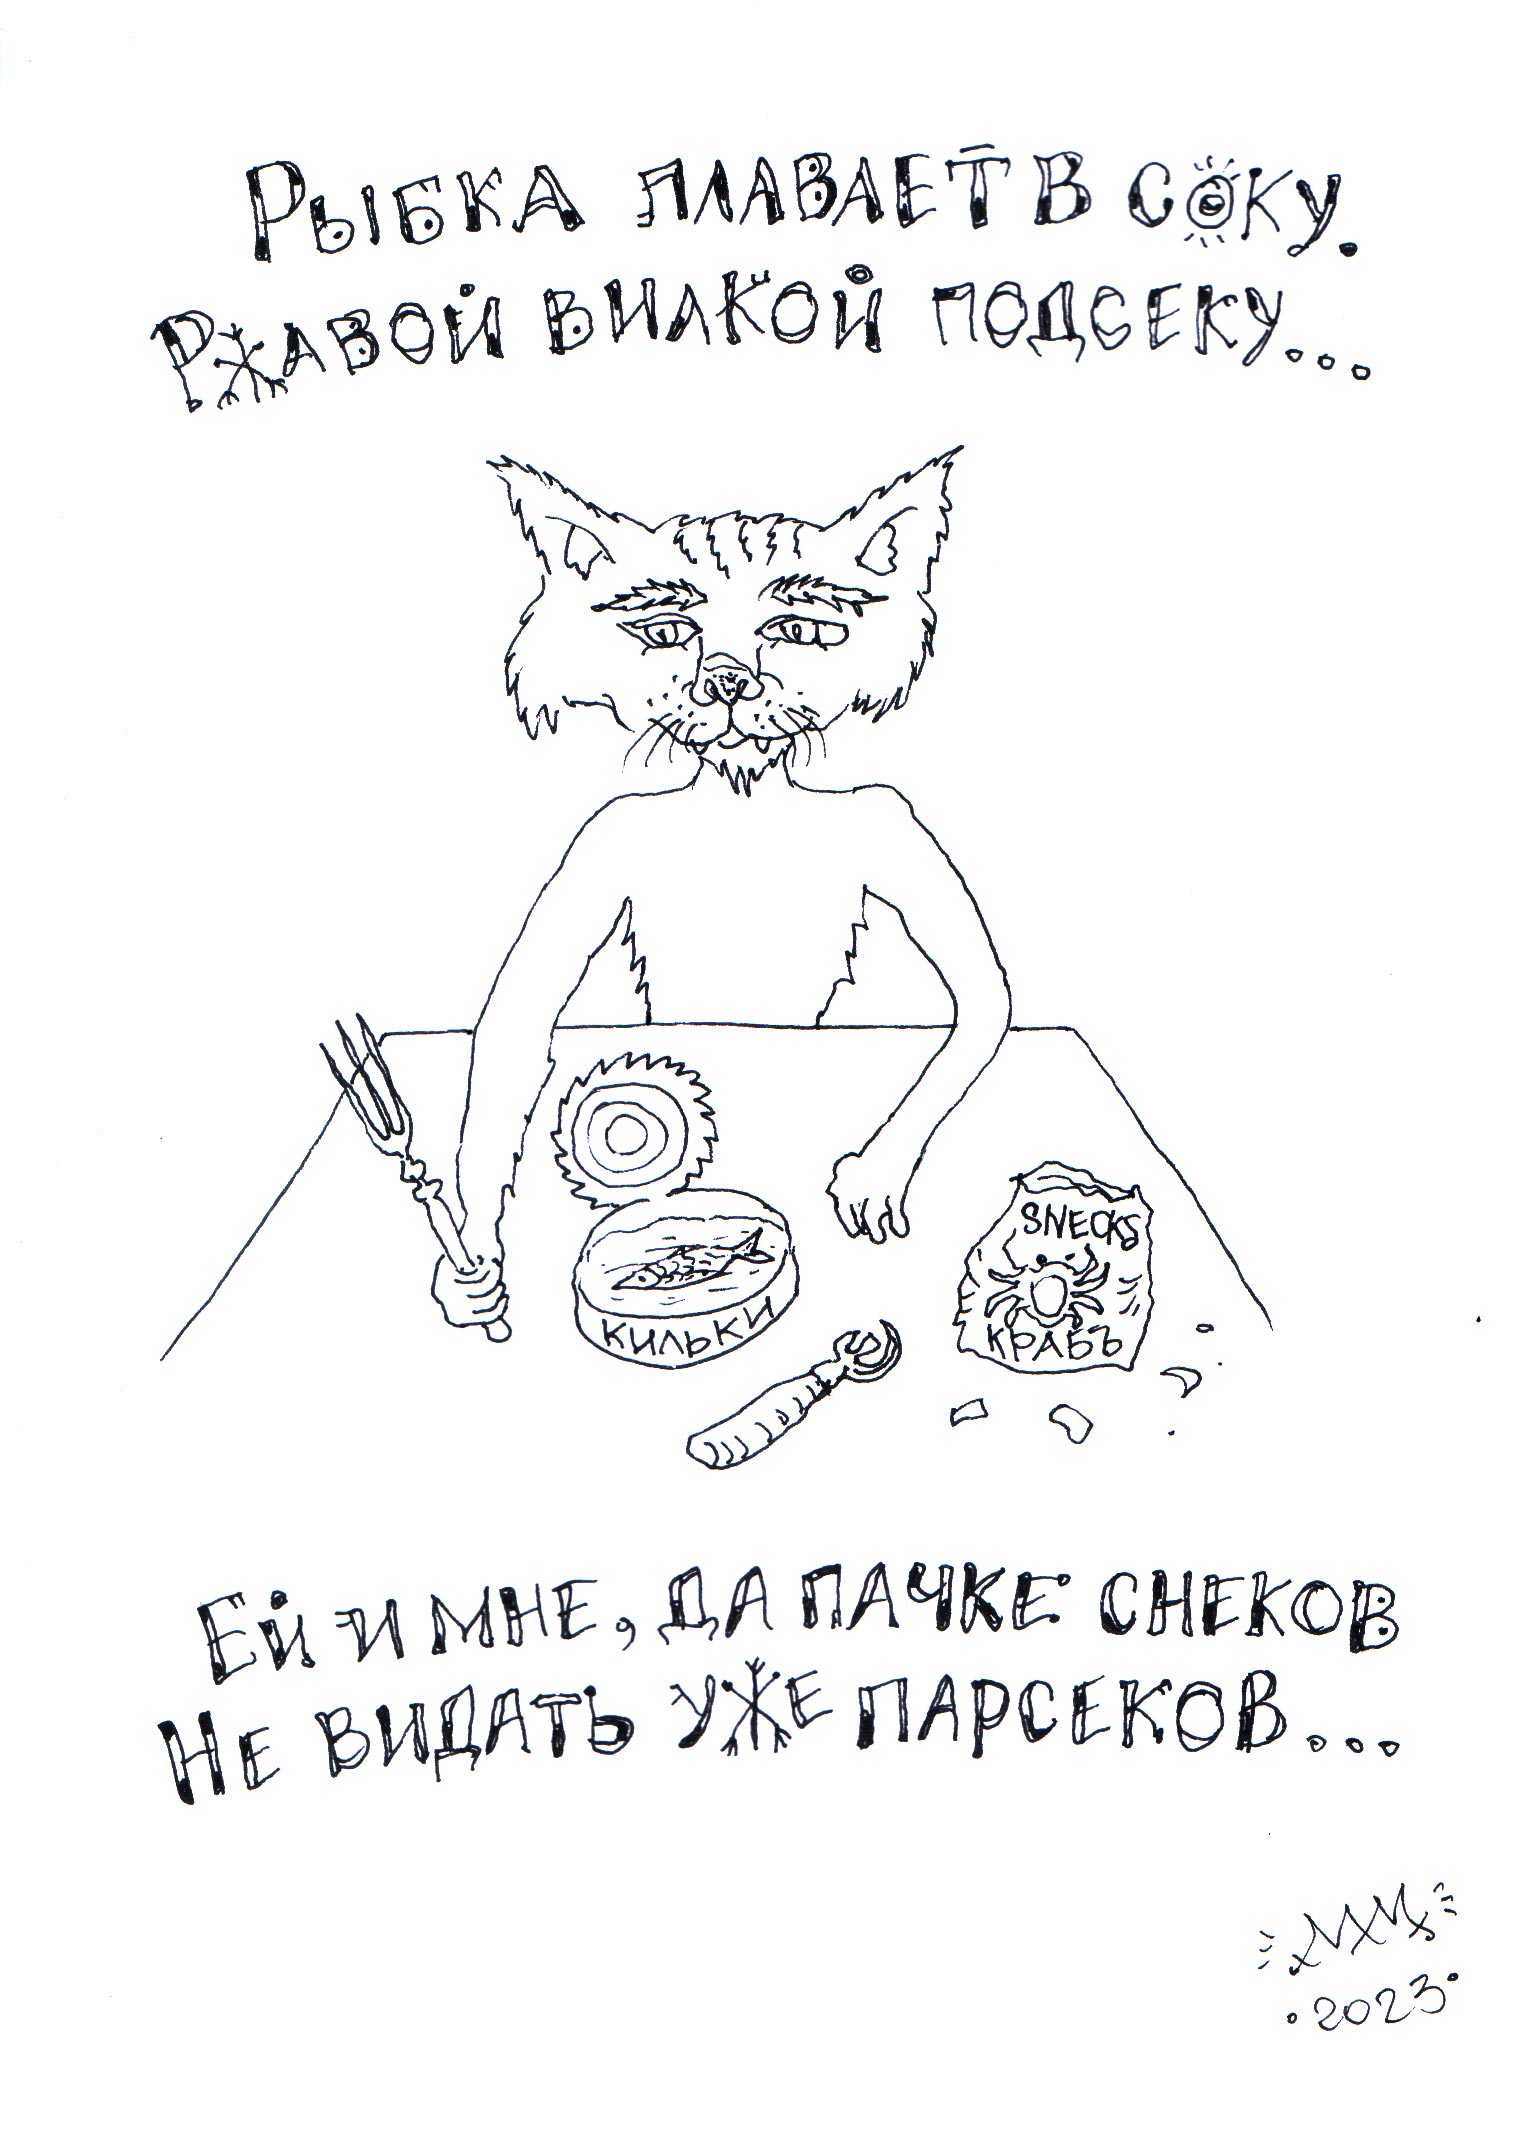 Рыбка плавает в соку.
Ржавой вилкой подсеку...
SNECKS
КРАБЪ
КИЛЬКИ
Ей и мне, да пачке снеков
Не видать уже парсеков...
2023